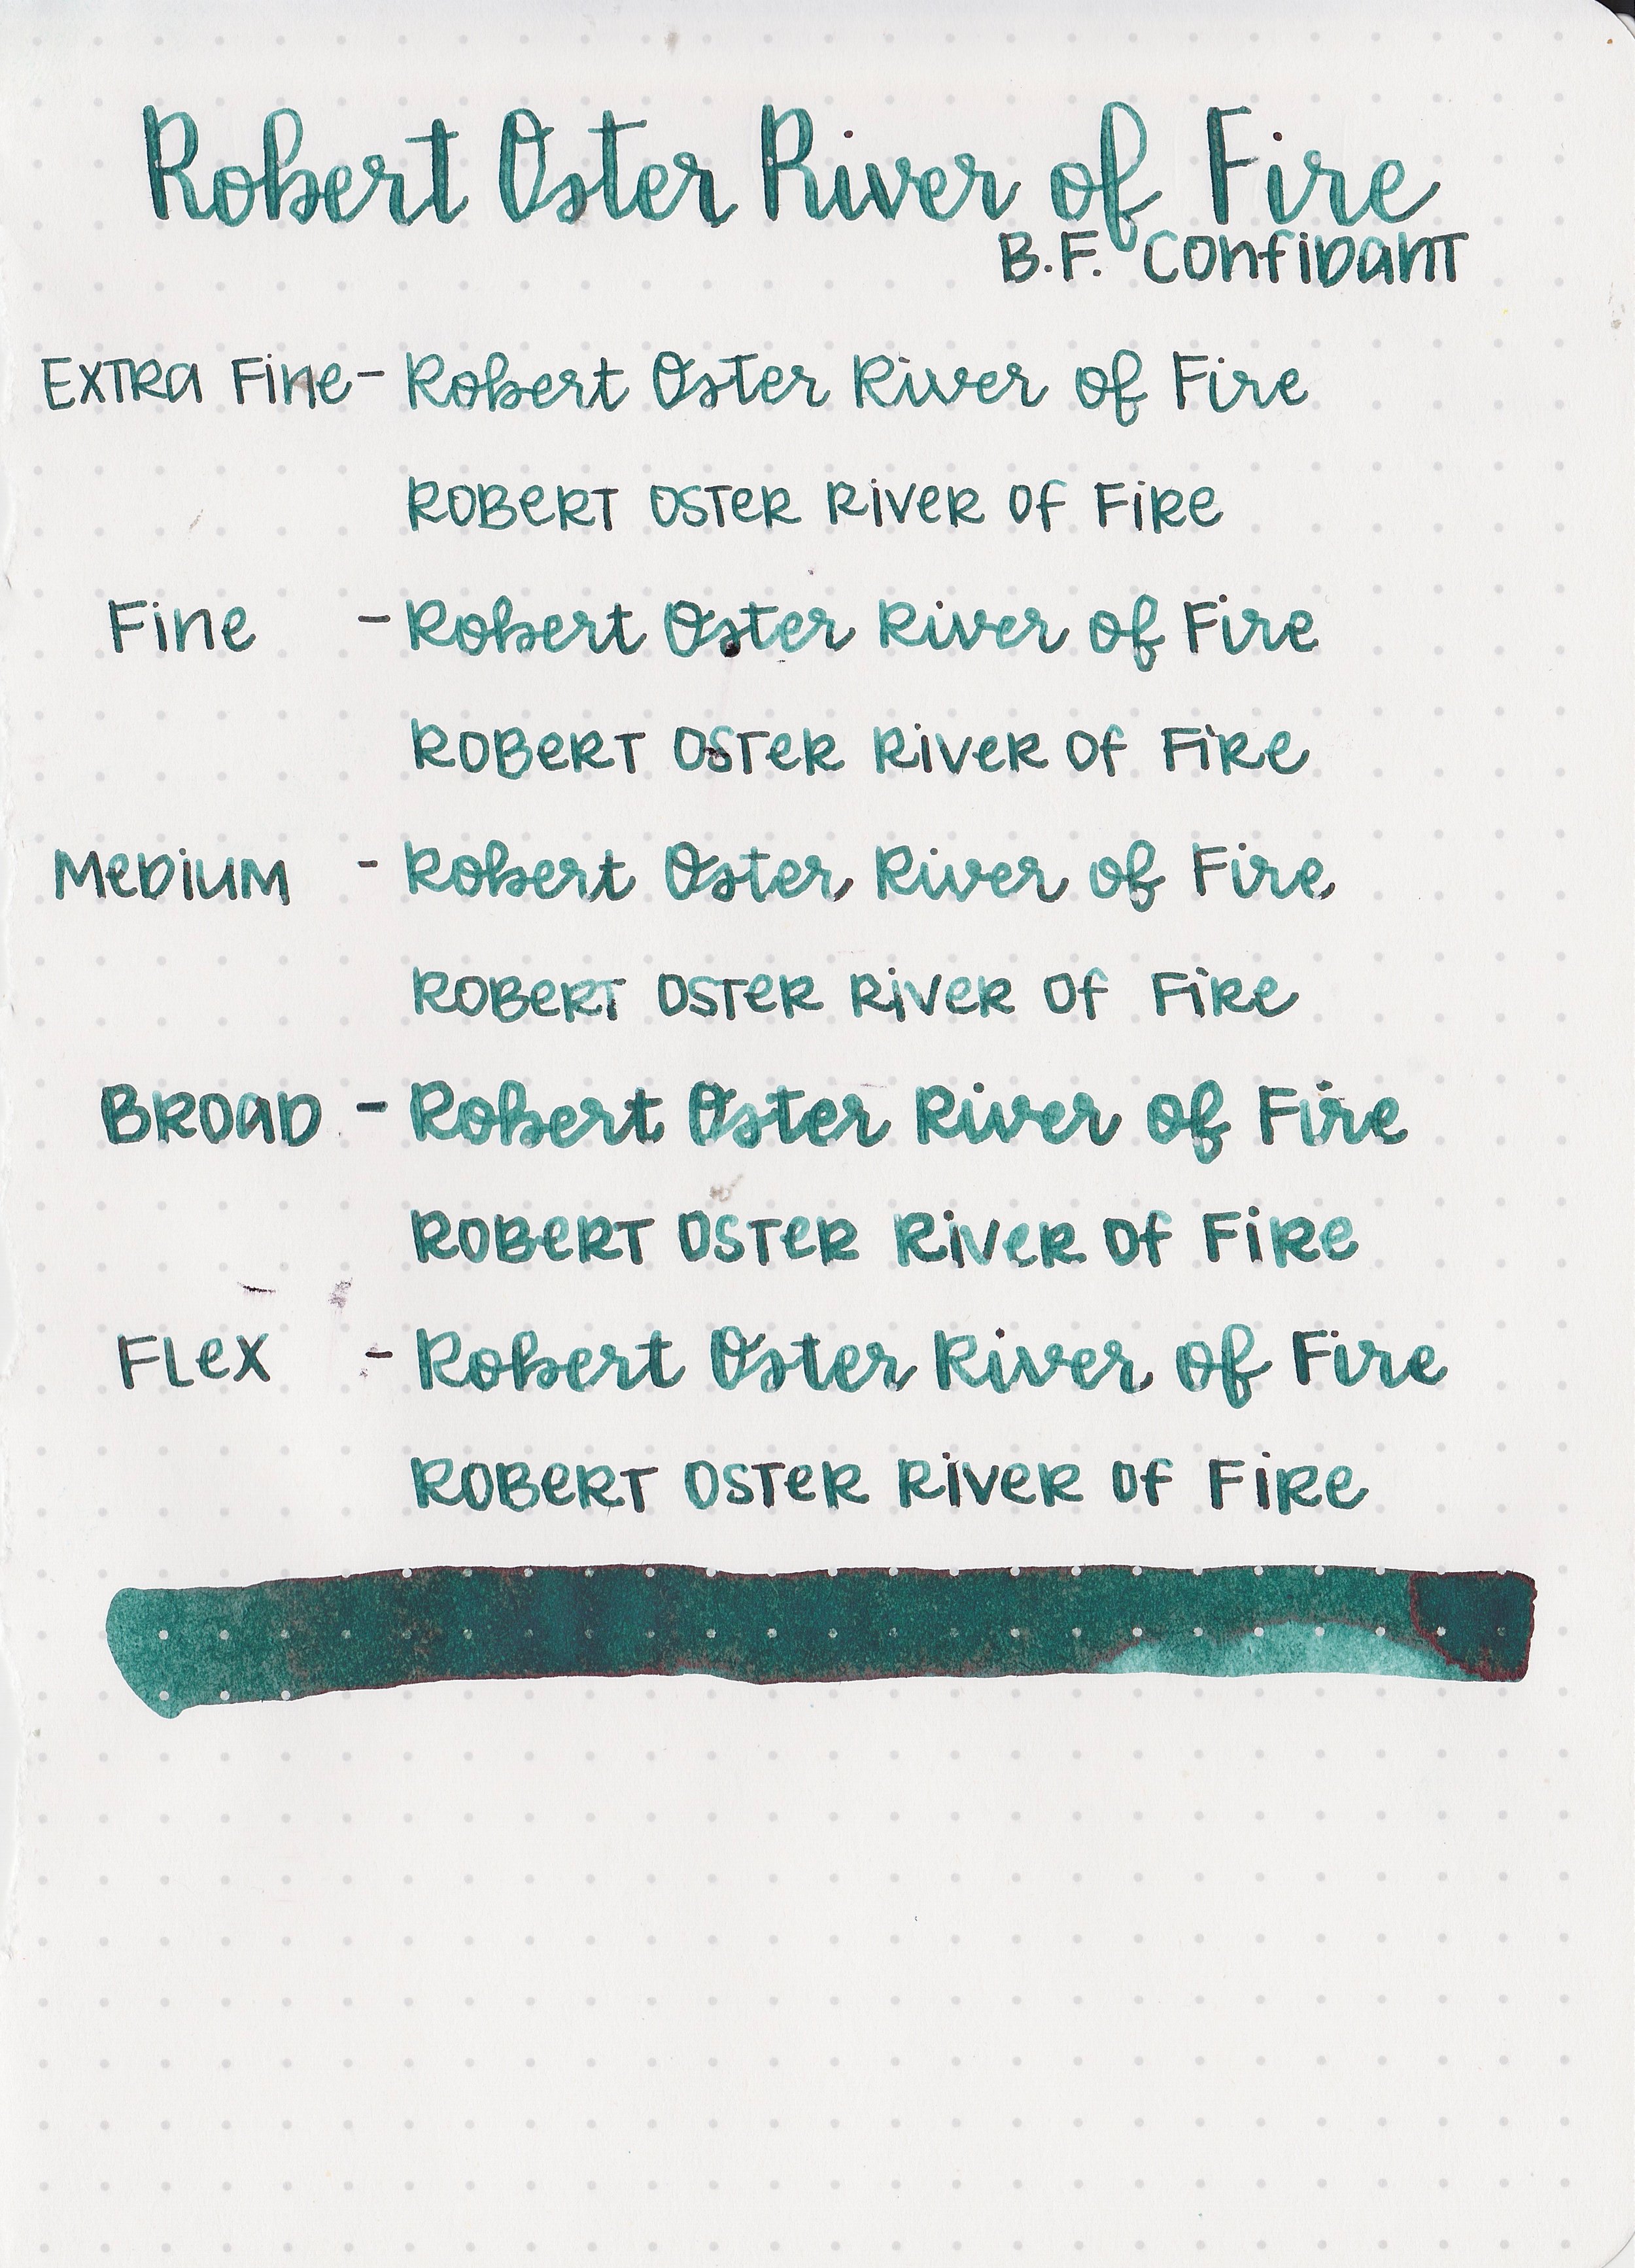 Robert Oster River of Fire
B.F. Confidant
Extra Fine - Robert Oster River of Fire
Robert Oster River of Fire
Fine - Robert Oster River of Fire
Robert Oster River of Fire
Medium - Robert Oster River of Fire
Robert Oster River of Fire
Broad - Robert Oster River of Fire
Robert Oster River of Fire
Flex - Robert Oster River of Fire
Robert Oster River of Fire